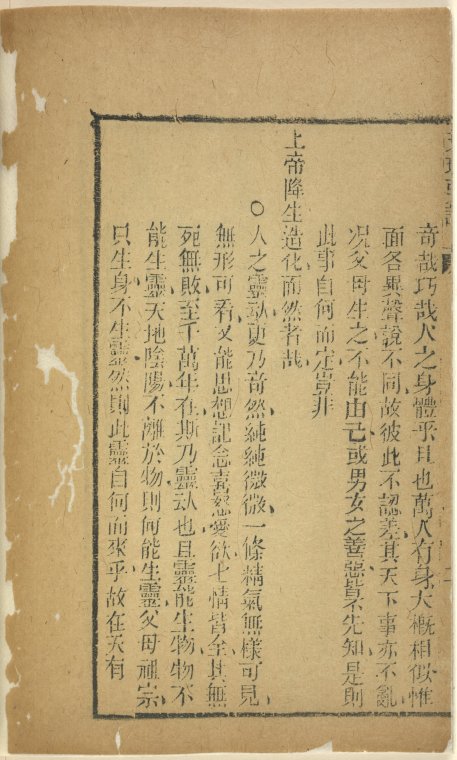 奇哉巧哉人之身體乎且也萬人有身大概相似惟
面各異聲說不同故彼此不認差其天下事亦不亂
况父母生之不能由己或男女之善惡皆不先知是則
此事自何而定豈非
上帝降生造化而然者哉
○人之靈䰟更乃奇然純純微微一條精氣無樣可見
無形可看又能思想記念喜怒愛欲七情皆全其無
死無敗至千萬年在斯乃靈䰟也且靈能生物物不
能生靈天地陰陽不離於物則何能生靈父母祖宗
只生身不生靈然則此靈自何而來乎故在天有